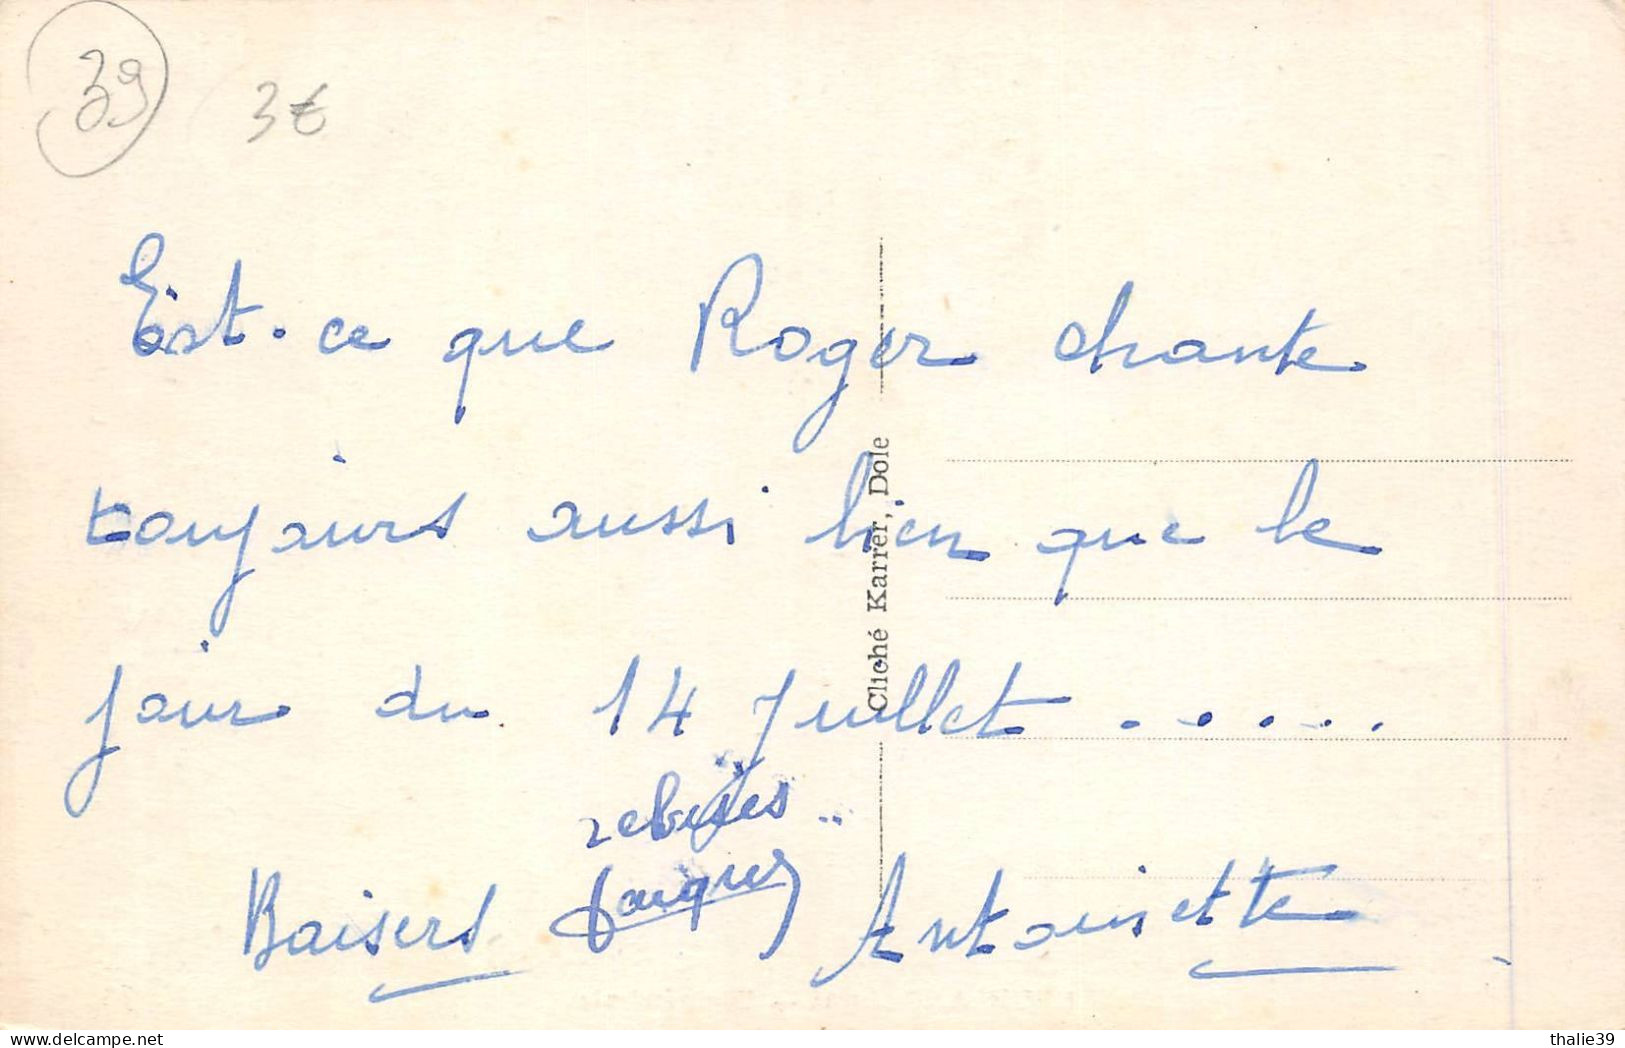 39
3€
Est-ce que Roger chante
toujours aussi bien que le
jour du 14 Juillet .....
rebises ..
Baisers Jacques Antoinette
Cliché Karrer, Dole
delcampe.net
thalie39